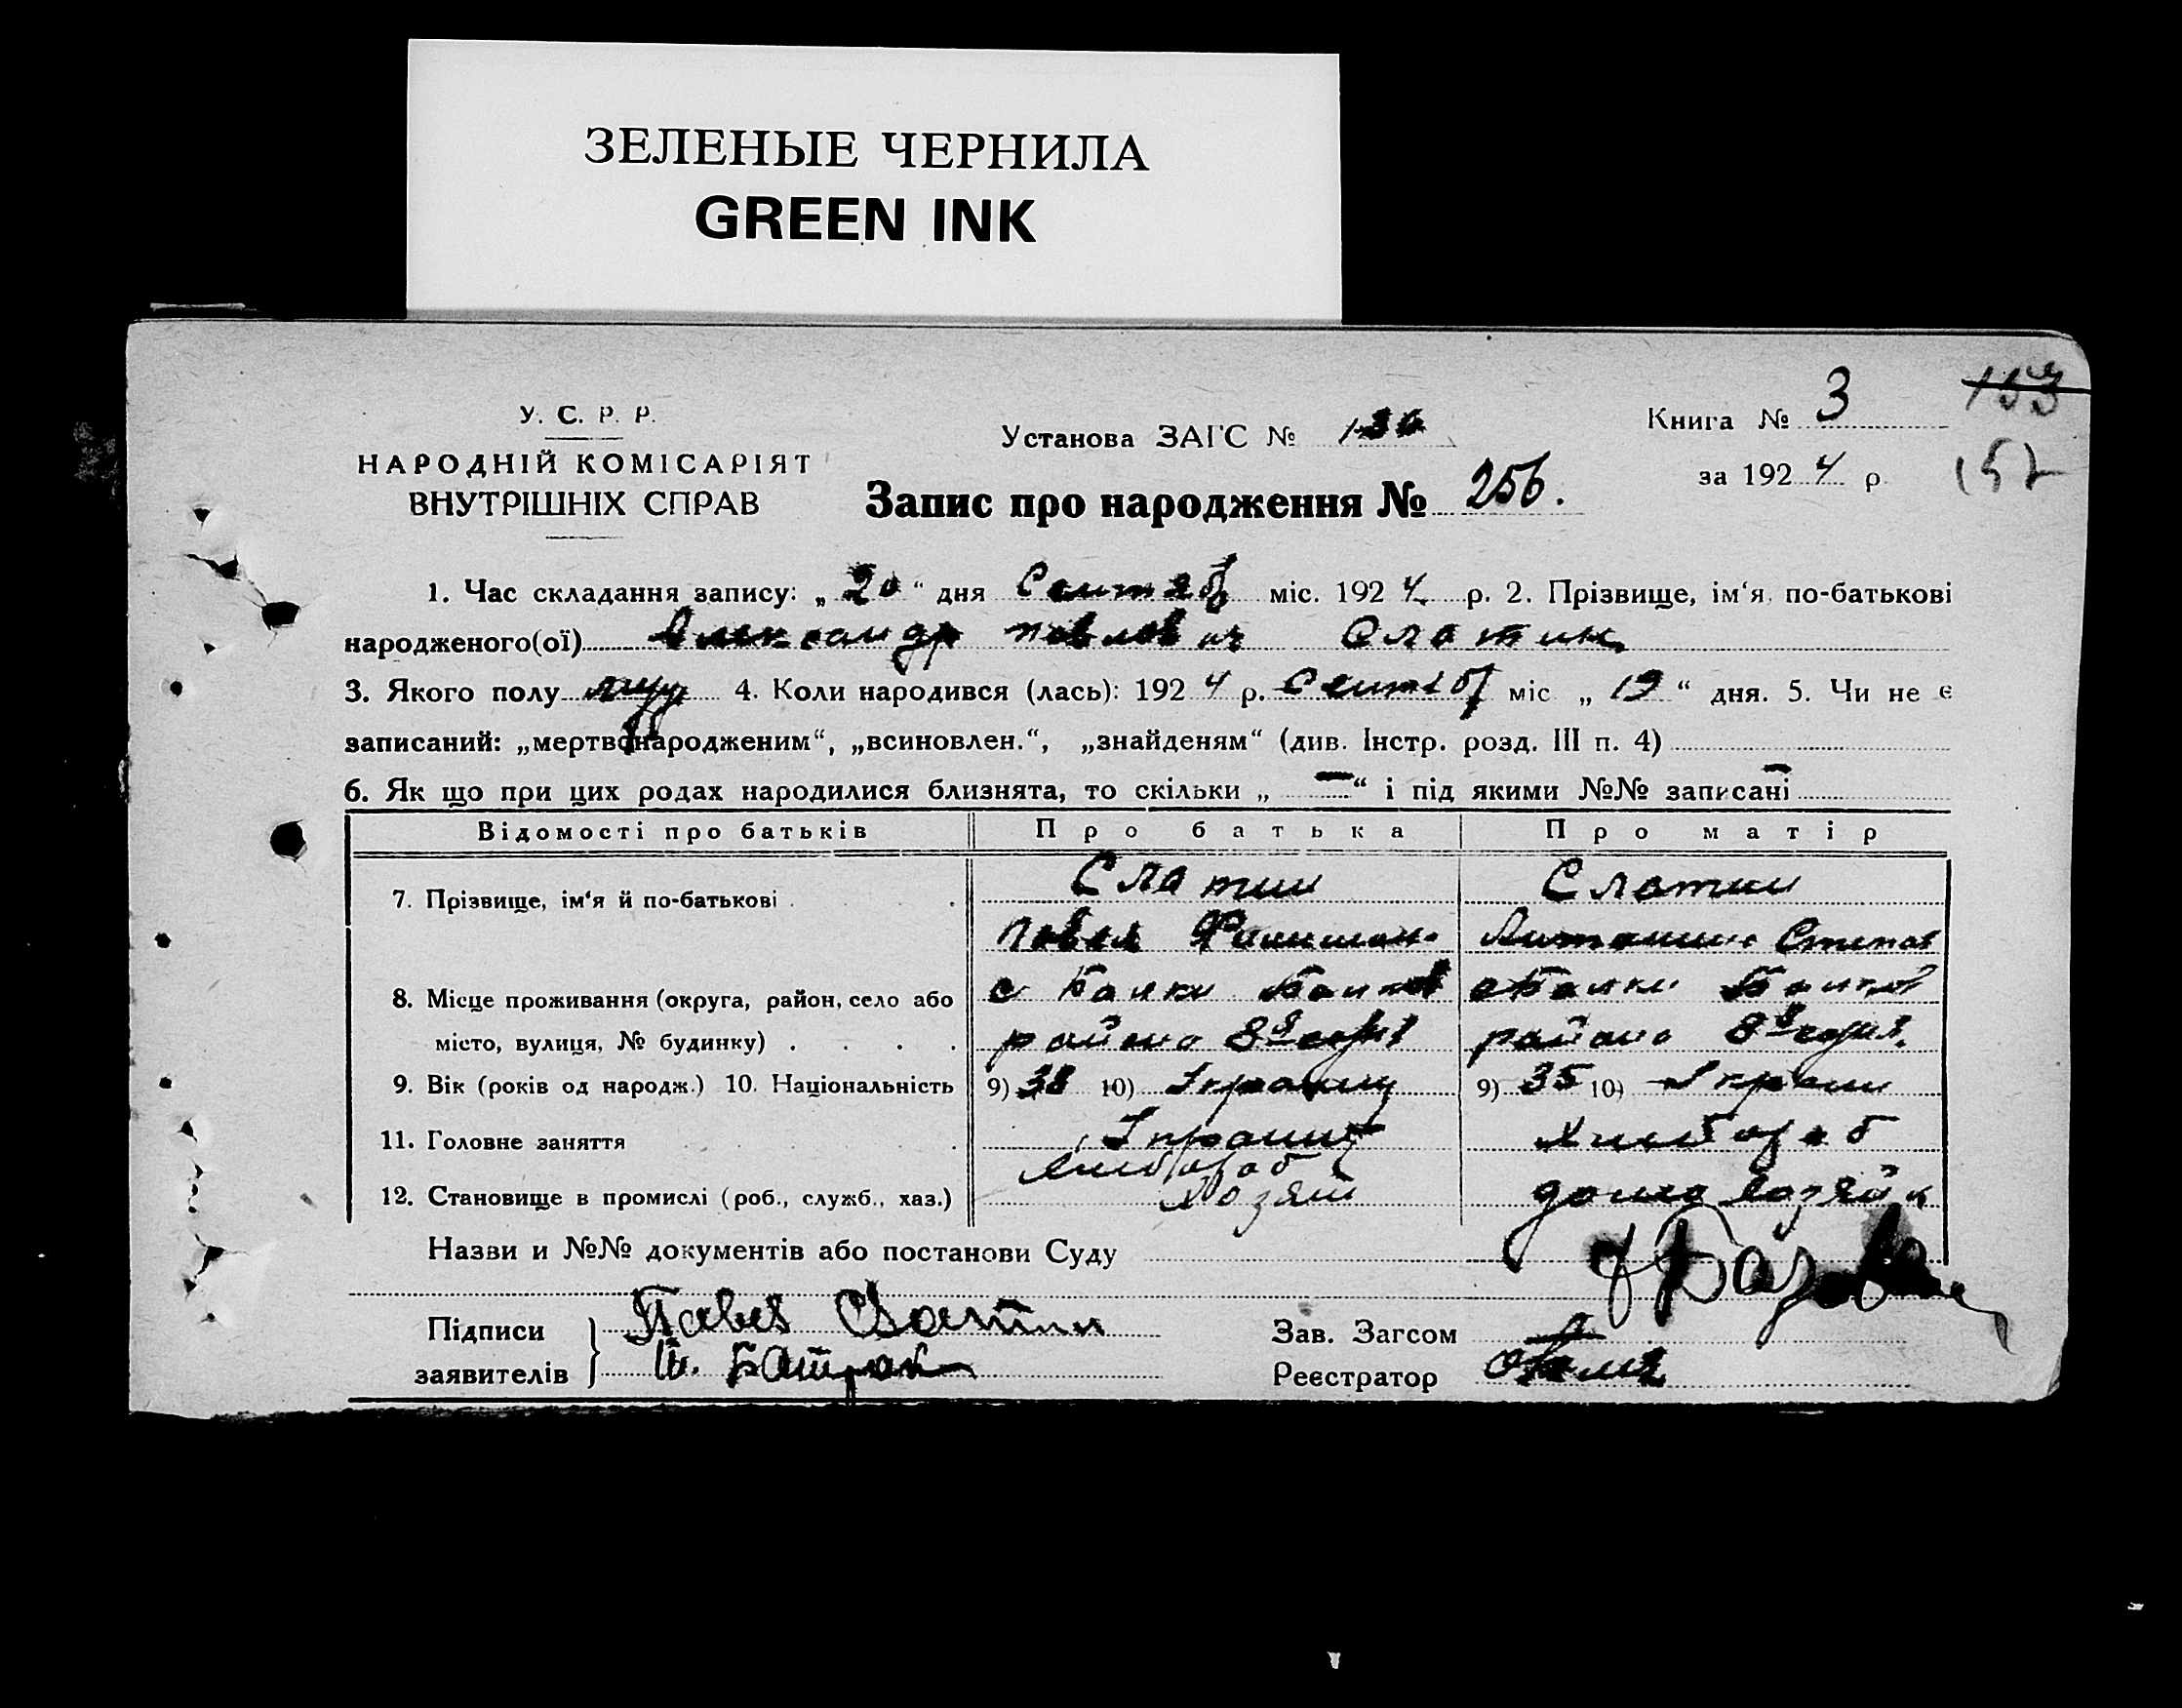 ЗЕЛЕНЫЕ ЧЕРНИЛА
GREEN INK
У. С. Р. Р.
НАРОДНІЙ КОМІСАРІЯТ
ВНУТРІШНІХ СПРАВ
Установа ЗАГС № 130
Запис про народження № 256.
Книга № 3
за 1924 р
153
152
1. Час складання запису: „20“ дня Сентяб міс. 1924 р. 2. Прізвище, ім‘я, по-батькові
народженого(ої) Александр Павлович Слатин
3. Якого полу муж 4. Коли народився (лась): 1924 р. Сентяб міс „19“ дня. 5. Чи не є
записаний: „мертвонародженим“, „всиновлен.“, „знайденям“ (див. Інстр. розд. III п. 4)
6. Як що при цих родах народилися близнята, то скільки „ — “ і під якими №№ записані —
Відомості про батьків Про батька Про матір
7. Прізвище, ім‘я й по-батькові Слатин Слатин
Павел Антонина Степан
8. Місце проживання (округа, район, село або с Балки с Балки
місто, вулиця, № будинку) района 8я района 8я
9. Вік (років од народж.) 10. Національність 9) 38 10) Украинц 9) 35 10) Украин
11. Головне заняття Украинц Хлебораб
Хлебораб
12. Становище в промислі (роб., служб., хаз.) Хозяин домохозяйк
Назви и №№ документів або постанови Суду
Підписи Павел Слатин
заявителів Батрак
Зав. Загсом
Реєстратор